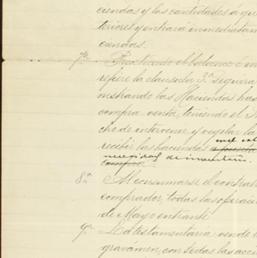 ciendas y las cantidades á que
teriores y entrará inmediatam
cundas.
7ª Practicado el balance
refiere la clausula 2ª seguirá
nistrando las Haciendas has
compra venta, teniendo el
cho de intervenir y vigilar la
recibir las haciendas
8ª Al consumarse el contrato
comprador, todas las operacio
de Mayo entrante.
9ª La testamentaria vende
gravámen, con todas las accio